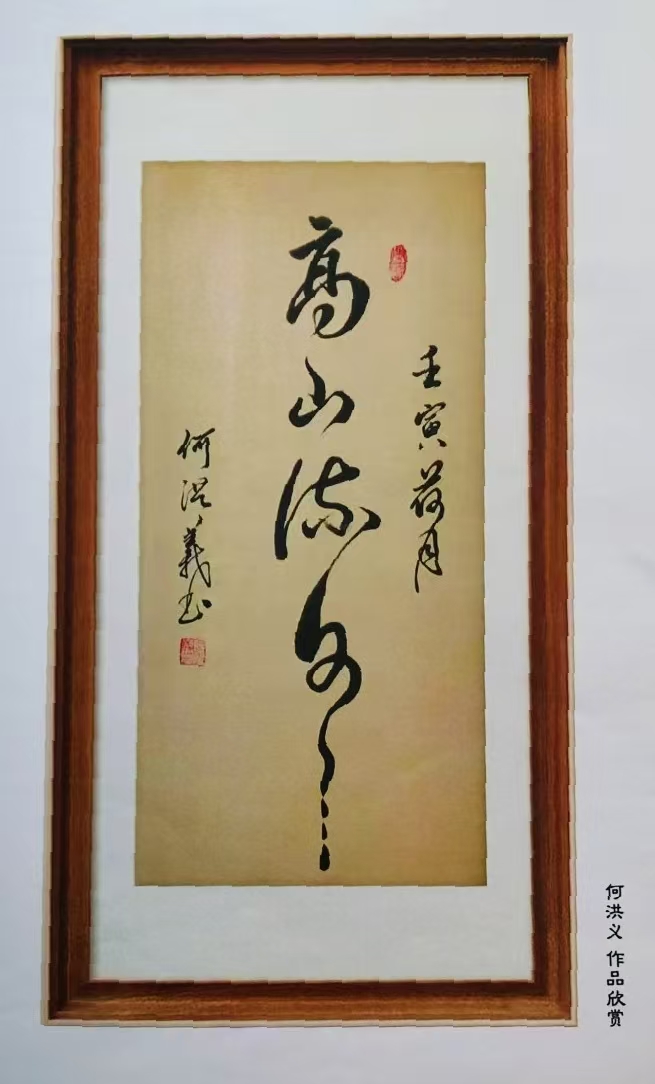 壬寅荷月
高山流水
何洪義书
何洪义 作品欣赏